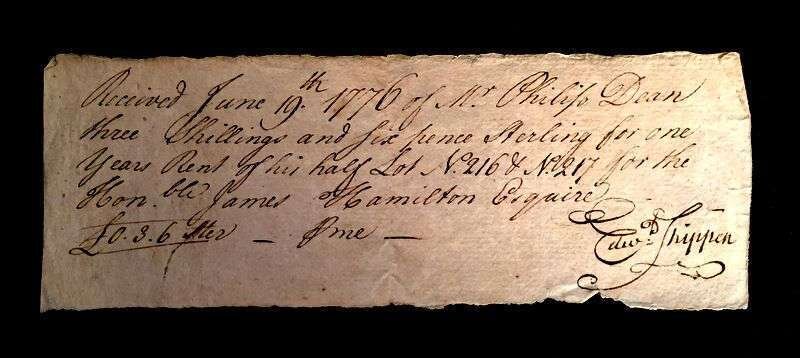 Received June 19.th 1776 of Mr Philip Dean
three Shillings and six pence Sterling for one
Years Rent of his half Lot No. 216 & No. 217 for the
Hon.ble James Hamilton Esquire
£0. 3. 6 Ster — P me —
Edw.d Shippen